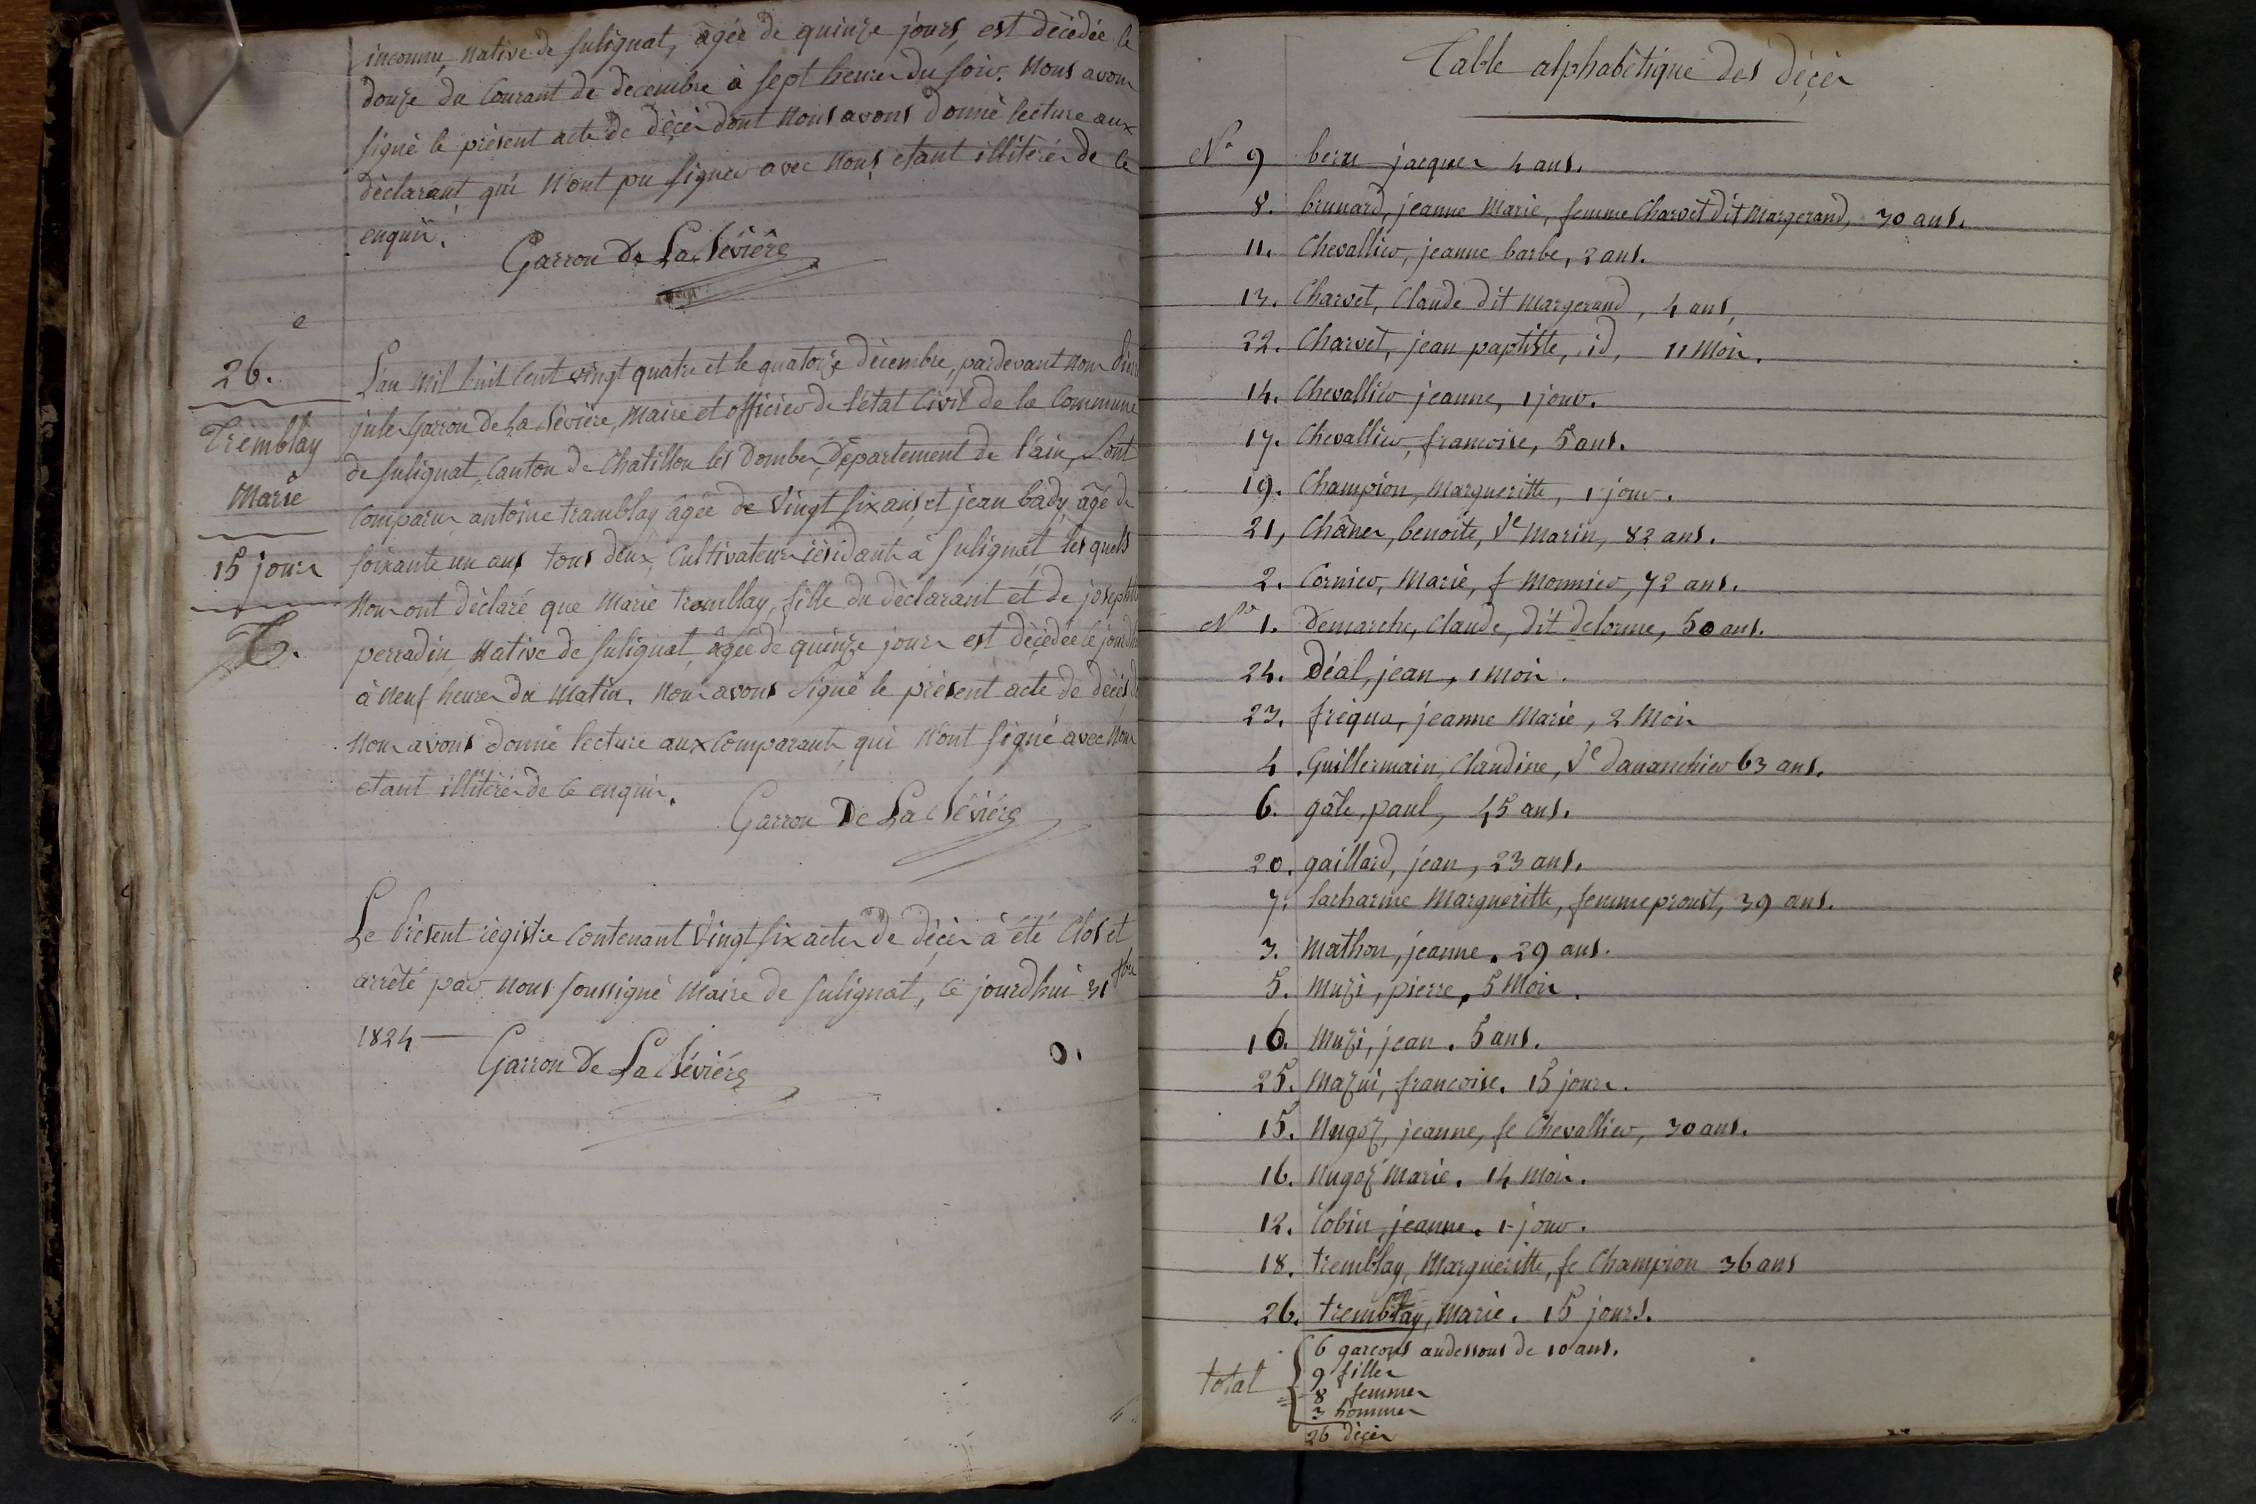 inconnu, native de Sulignat, âgée de quinze jours, est décédée le
douze du courant de décembre à sept heures du soir. Nous avons
signé le présent acte de décès dont nous avons donné lecture aux
déclarant, qui n'ont pu signer avec nous, etant illitérés de ce
enquis.
Garron De La Sévière
26.
Tremblay
Marie
15 jours
T.
L'an mil huit cent vingt quatre et le quatorze décembre, pardevant nous
jules Garron de La Sévière, Maire et officier de l'état Civil de la Commune
de Sulignat, Canton de Chatillon les Dombes, Département de l'ain, sont
Comparus antoine tramblay âgée de vingt six ans, et jean bady, âgé de
soixante un ans, tous deux, Cultivateurs résidants à Sulignat, les quels
Nous ont déclaré que Marie tramblay, fille du déclarant et de josephte
perradin, Native de Sulignat, âgée de quinze jours est décédée le
à neuf heures du Matin. Nous avons signé le présent acte de décès
Nous avons donné lecture aux Comparants, qui n'ont signé avec Nous
etant illitérés de ce enquis.
Garron De La Sévière
Le Present régistre Contenant Vingt six actes de décès à été Clos et
arrêté par Nous soussigné Maire de Sulignat, ce jourdhui 31 xbre
1824
Garron De La Sévière
Table alphabétique des décès
N° 9 beru jacques 4 ans.
8. brunard, jeanne Marie, femme Charvet dit Margerand, 30 ans.
11. Chevallier, jeanne barbe, 2 ans.
13. Charvet, Claude dit Margerand, 4 ans,
22. Charvet, jean paptiste, id, 11 Mois.
14. Chevallier jeanne, 1 jour.
17. Chevallier, francoise, 5 ans.
19. Champion, Margueritte, 1 jour.
21, Châner, benoite, Ve Marin, 82 ans.
2. Cornier, Marie, f Monnier, 72 ans.
N° 1. Demarche, Claude, dit delorme, 50 ans.
24. Déal, jean, 1 Mois.
23. fréqua, jeanne Marie, 2 Mois
4. Guillermain, Claudine, Ve dananchier 63 ans.
6. gâle, paul, 45 ans.
20. gaillard, jean, 23 ans.
7. lacharme Margueritte, femme proust, 39 ans.
3. Mathon, jeanne. 29 ans.
5. Muzi, pierre, 5 Mois.
10. Muzi, jean. 5 ans.
25. Mazui, francoise. 15 jours.
15. Nugoz, jeanne, fe Chevallier, 30 ans.
16. Nugoz Marie. 14 Mois.
12. Cobin, jeanne. 1 jour.
18. tremblay, Margueritte, fe Champion 36 ans
26. tremblay, Marie. 15 jours.
total
6 garcons audessous de 10 ans.
9 filles
8 femmes
3 hommes
26 décès